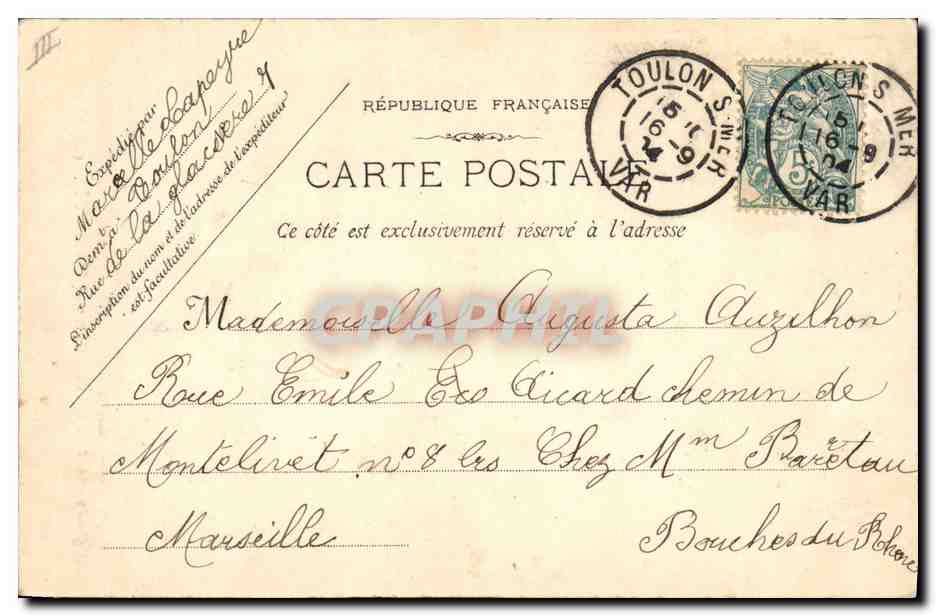 III
Expédié par
Marcelle Lapeyre
Demt à Toulon
Rue de la glacière 7
L'inscription du nom et de l'adresse de l'expéditeur
est facultative
RÉPUBLIQUE FRANÇAISE
CARTE POSTALE
Ce côté est exclusivement réservé à l'adresse
TOULON S MER
16 -9
04
VAR
5
TOULON S MER
16 -9
04
VAR
CPAPHIL
Mademoiselle Augusta Auzilhon
Rue Emile Aicard chemin de
Montelivet n° 8 bis Chez Mm Baretau
Marseille Bouches du Rhone